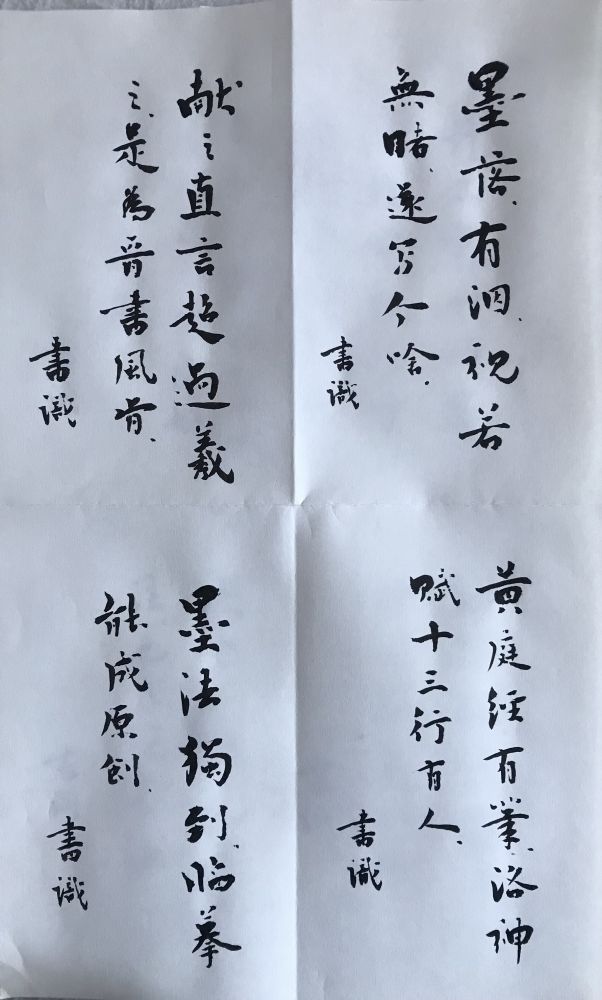 墨落、有泗、祝若
無暗、遂写个啥、
書識
献之直言超過羲
之、是為晋書風肯、
書識
黄庭経有業、洛神
賦十三行有人、
書識
墨法獨到、临摹
能成原創、
書識